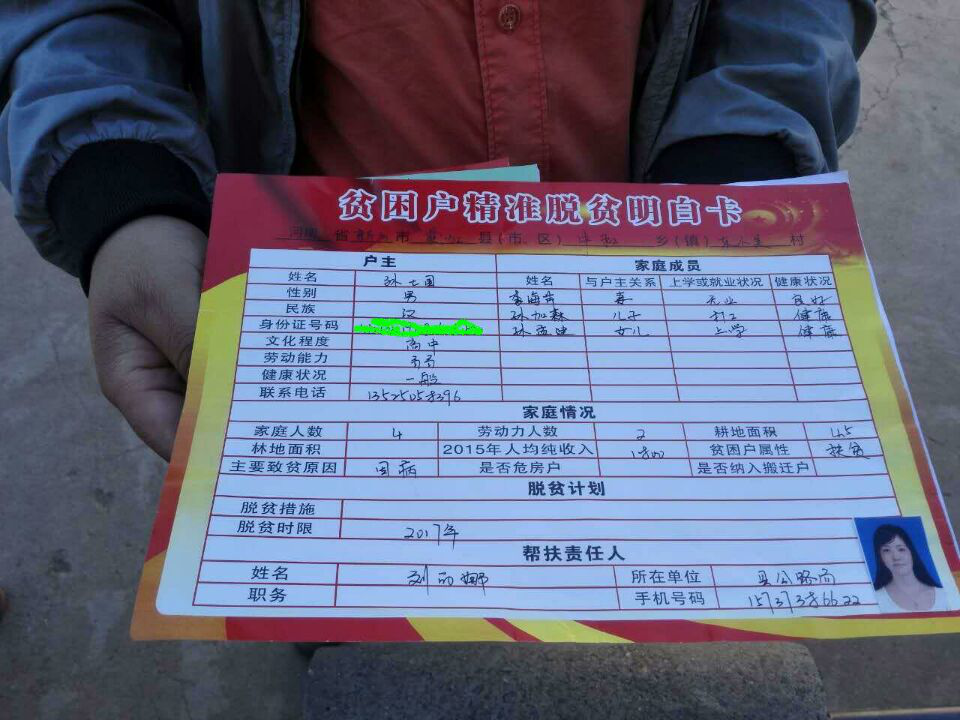 贫困户精准脱贫明白卡
河南 省 新乡 市 县(市、区) 乡(镇) 村
户主 家庭成员
姓名 孙士国 姓名 与户主关系 上学或就业状况 健康状况
性别 男 李海芹 妻 无业 良好
民族 汉 孙加森 儿子 打工 健康
身份证号码 女儿 上学 健康
文化程度 高中
劳动能力
健康状况 一般
联系电话 13525058396
家庭情况
家庭人数 4 劳动力人数 2 耕地面积 4.5
林地面积 2015年人均纯收入 贫困户属性 扶贫
主要致贫原因 因病 是否危房户 是否纳入搬迁户
脱贫计划
脱贫措施
脱贫时限 2017年
帮扶责任人
姓名 刘丽娜 所在单位 县公路局
职务 手机号码 15737386622